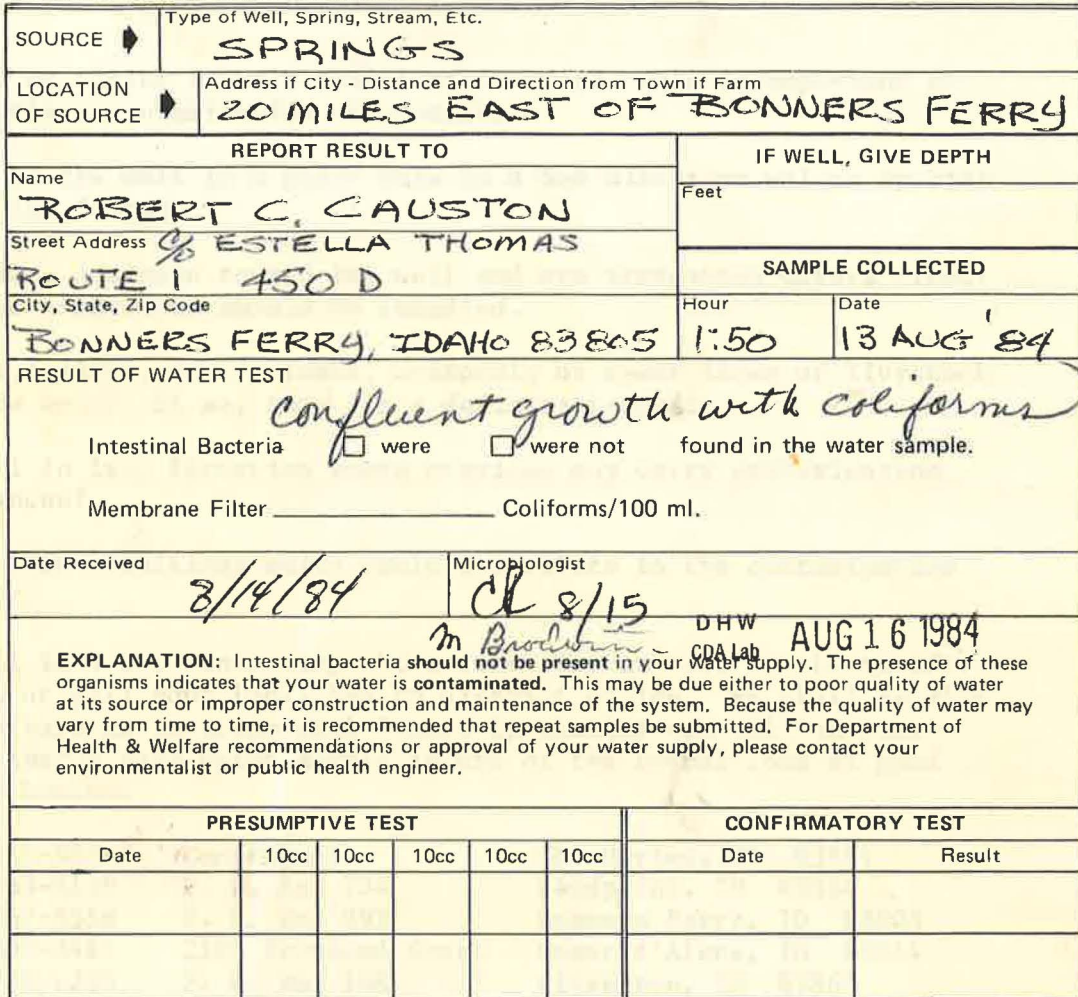 Type of Well, Spring, Stream, Etc.
SOURCE
SPRINGS
LOCATION OF SOURCE
Address if City - Distance and Direction from Town if Farm
20 MILES EAST OF BONNERS FERRY
REPORT RESULT TO
IF WELL, GIVE DEPTH
Name
Feet
ROBERT C. CAUSTON
Street Address C/O ESTELLA THOMAS
ROUTE 1 450 D
SAMPLE COLLECTED
City, State, Zip Code
Hour
Date
BONNERS FERRY, IDAHO 83805
1:50
13 AUG '84
RESULT OF WATER TEST
confluent growth with coliforms
Intestinal Bacteria □ were □ were not found in the water sample.
Membrane Filter ____________ Coliforms/100 ml.
Date Received
Microbiologist
8/14/84
8/15
m
DHW
CDA Lab
AUG 16 1984
EXPLANATION: Intestinal bacteria should not be present in your water supply. The presence of these
organisms indicates that your water is contaminated. This may be due either to poor quality of water
at its source or improper construction and maintenance of the system. Because the quality of water may
vary from time to time, it is recommended that repeat samples be submitted. For Department of
Health & Welfare recommendations or approval of your water supply, please contact your
environmentalist or public health engineer.
PRESUMPTIVE TEST
CONFIRMATORY TEST
Date 10cc 10cc 10cc 10cc 10cc Date Result